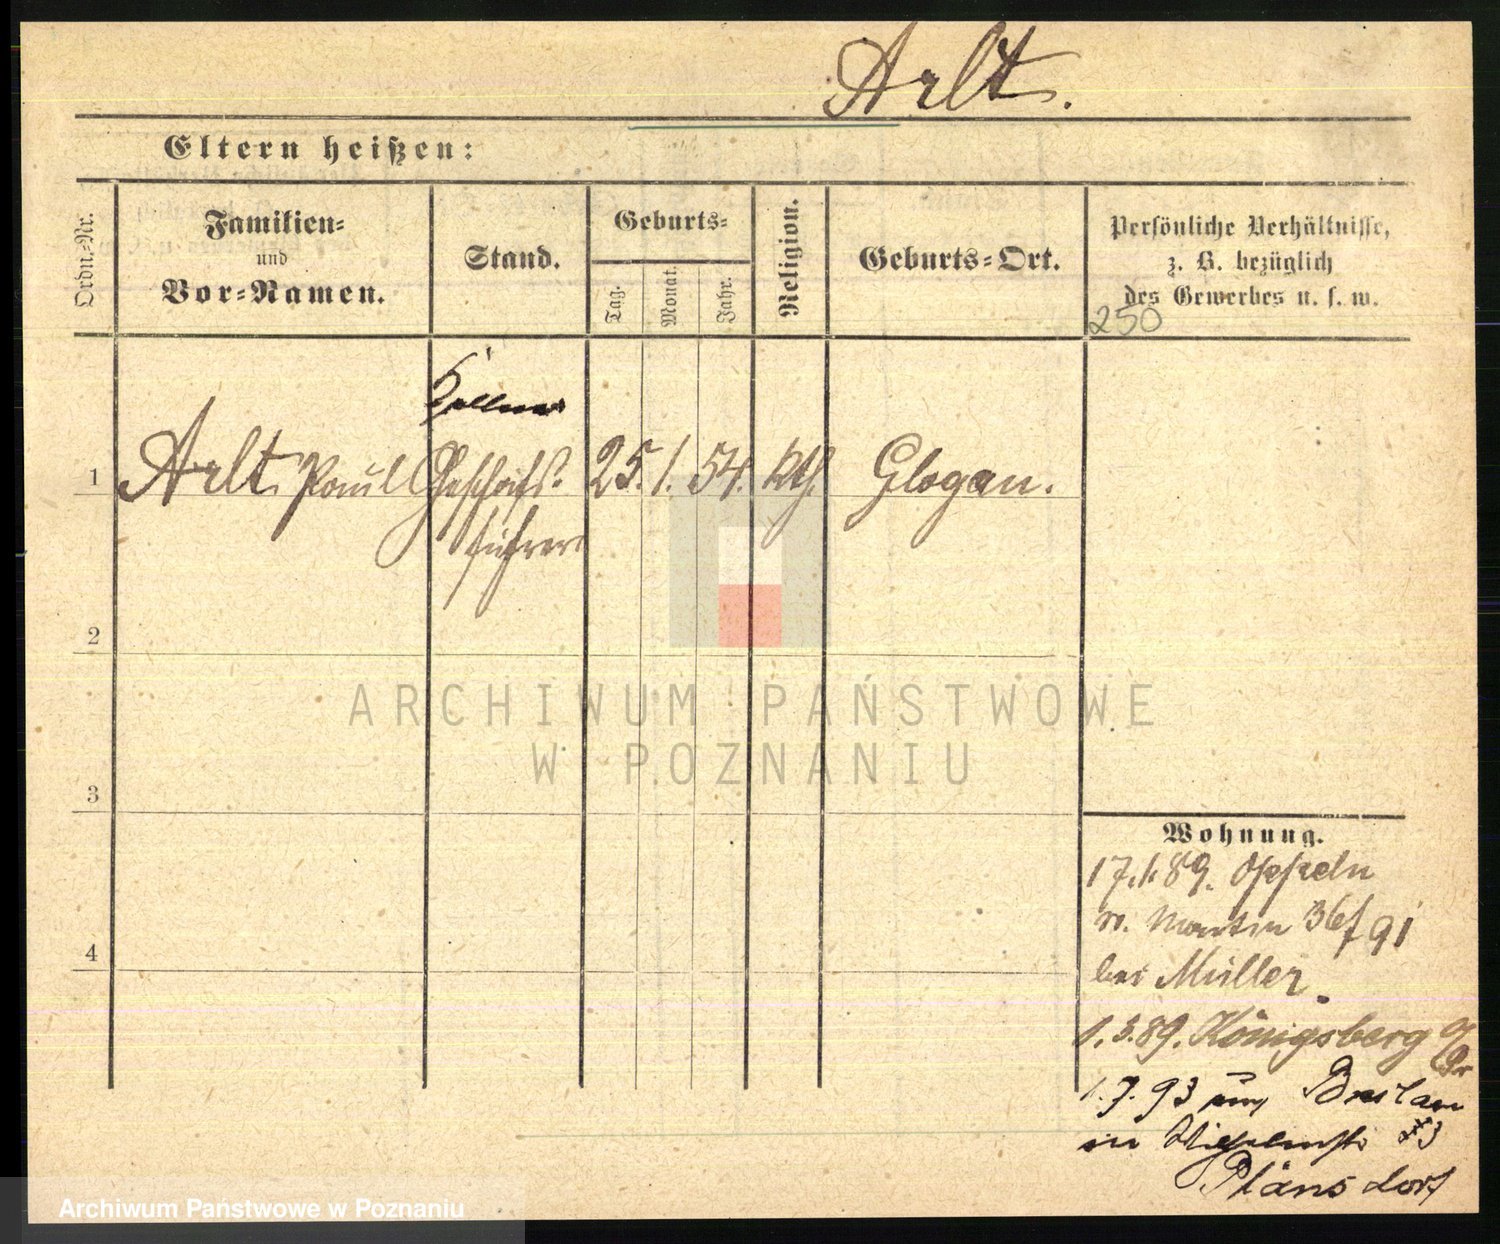 Arlt.
Eltern heißen:
Ordn.-Nr.
Familien-
und
Vor-Namen.
Stand.
Geburts-
Tag.
Monat.
Jahr.
Religion.
Geburts-Ort.
Persönliche Verhältnisse,
z. B. bezüglich
des Gewerbes u. s. w.
250
Kellner
1 Arlt Paul Geschäfts- 25. 1. 54. kth. Glogau.
führer
2
3
4
ARCHIWUM PAŃSTWOWE
W POZNANIU
Wohnung.
17.1.89. Oppeln
n. Martin 36f 91
bei Müller.
1.3.89. Königsberg O/
Pr
1.7.93 Breslau
in 23
dorf
Archiwum Państwowe w Poznaniu